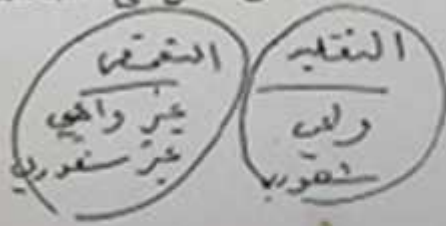 التقليد
وعي
شعوري
التقمص
غير واعي
غير شعوري